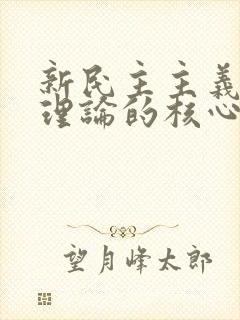 新民主主義
理論的核心
望月峰太郎